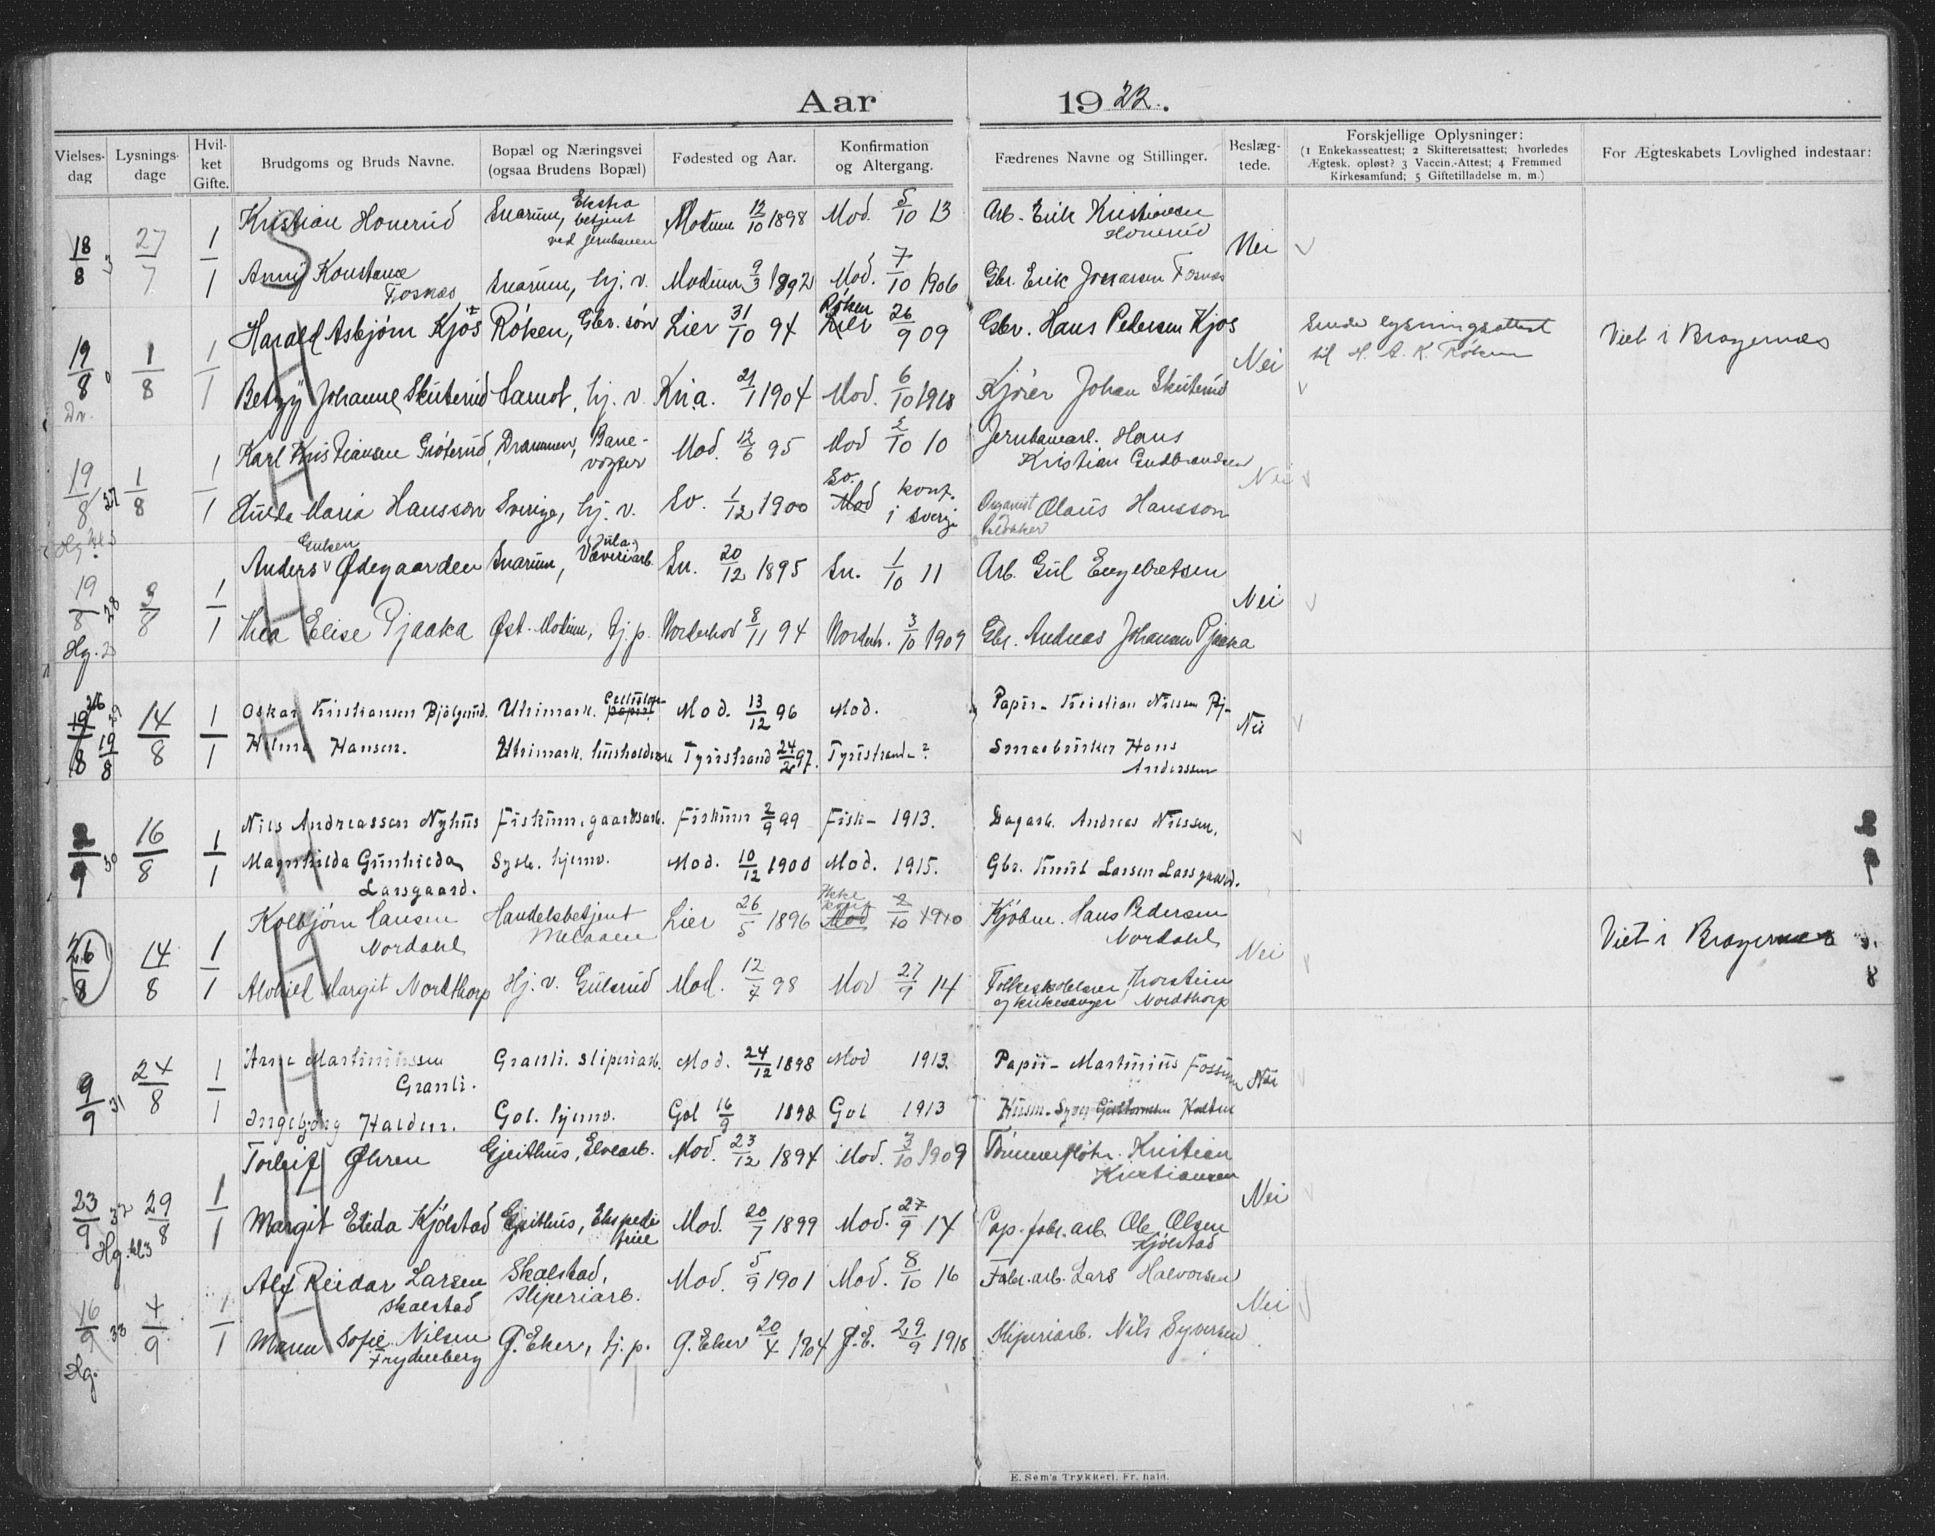 Aar 1922.
Vielses-dag Lysnings-dage Hvil-ket Gifte. Brudgoms og Bruds Navne. Bopæl og Næringsvei (ogsaa Brudens Bopæl) Fødested og Aar. Konfirmation og Altergang. Fædrenes Navne og Stillinger. Beslæg-tede. Forskjellige Oplysninger: (1 Enkekasseattest; 2 Skifteretsattest; hvorledes Ægtesk. opløst? 3 Vaccin.-Attest; 4 Fremmed Kirkesamfund; 5 Giftetilladelse m. m.) For Ægteskabets Lovlighed indestaar:
18/8 27/7 1/1 Nei
Kristian Honerud Snarum, Ekstra betjent ved jernbanen Modum 12/10 1898 Mod. 5/10 13 Arb. Erik Kristiansen Honerud
Anny Konstanse Fosnæs Snarum, hj. v. Modum 9/3 1892 Mod. 7/10 1906 Gbr. Erik Fosnæs
19/8 Dr. 1/8 1/1 Nei
Harald Asbjørn Kjøs Røken, Gbr. søn Lier 31/10 94 Røken Lier 26/9 09 Gbr. Hans Pedersen Kjos Sende lysningsattest til H. A. K. Røken Viet i Bragernæs
Betzy Johanne Skuterud Samot, hj. v. Kria. 21/1 1904 Mod. 6/10 1918 Kjører Johan Skuterud
19/8 1/8 1/1 Nei
Karl Kristiansen Drammen, Bane-vogter Mod. 12/6 95 Mod 2/10 10 Jernbanearb. Hans Kristian Gudbrandsen
Maria Hansson Sverige, hj. v. Sv. 1/12 1900 Sv. Mod konf. i Sverige Olaus Hansson
19/8 28 Hg. 3/8 1/1 Nei
Anders Gulsen Ødegaarden Snarum, Væveriarb. Sn. 20/12 1895 Sn. 1/10 11 Arb. Gul Engebretsen
Thea Elise Pjaaka Øst-Modum, tj. p. Norderhov 8/11 94 Norderh. 3/10 1909 Gbr. Andreas Johansen Pjaaka
26 19/8 29 19/8 14/8 1/1 Nei
Oskar Kristiansen Vikimark. Cellulose- papir Mod. 13/12 96 Mod. Papir- Kristian Nilsen Bj-
Hilma Hansen. Tyristrand 24/2 97. Tyristrand? Smaabruker Hans Anderssen
2/9 30 16/8 1/1
Nils Andreassen Nyhus Fiskum, gaardsarb. Fiskum 2/9 99 Fisk- 1913. Dagarb. Andreas Nilssen.
Magnhilda Gunhilda Larsgaard. Sysle. hjemv. Mod. 10/12 1900 Mod. 1915. Gbr. Knut Larsen Larsgaard.
26/8 14/8 1/1 Nei
Kolbjørn Hansen Nordahl Handelsbetjent Lier 26/5 1896 Ikke konf. Mod 2/10 1910 Kjøbm. Hans Pedersen Nordahl Viet i Bragernæs
Margit Nordthorp Hj. v. Gulsrud Mod. 12/4 98 Mod 27/9 14 Folkeskolelærer og kirkesanger Thorstein Nordthorp
9/9 31 24/8 1/1 Nei
Arne Martiniussen Granli. Granli. sliperiarb. Mod. 24/12 1898 Mod 1913. Papir- Martinius Fossum
Ingebjørg Halden. Gol. hjemv. Gol 16/9 1898 Gol 1913 Husm. Syver Halden
23/9 32 Hg. kl 3 29/8 1/1 Nei
Torleif Øhren Gjeithus, Elvearb. Mod. 23/12 1894 Mod. 3/10 1909 Tømmerfløtr. Kristian Kristiansen
Margit Elida Kjølstad Gjeithus, Ekspeditrice Mod. 20/7 1899 Mod. 27/9 14 Cap. fabr. arb. Ole Olsen Kjølstad
16/9 33 Hg. 4/9 1/1 Nei
Alf Reidar Larsen Skalstad Skalstad, Sliperiarb. Mod. 5/9 1901 Mod. 8/10 16 Fabr. arb. Lars Halvorsen
Maren Sofie Nilsen Frydenberg Ø. Eker, hj. p. Ø. Eker 20/4 1904 Ø. E. 29/9 1918 Sliperiarb. Nils Syversen
E. Sem's Trykkeri, Fr.hald.